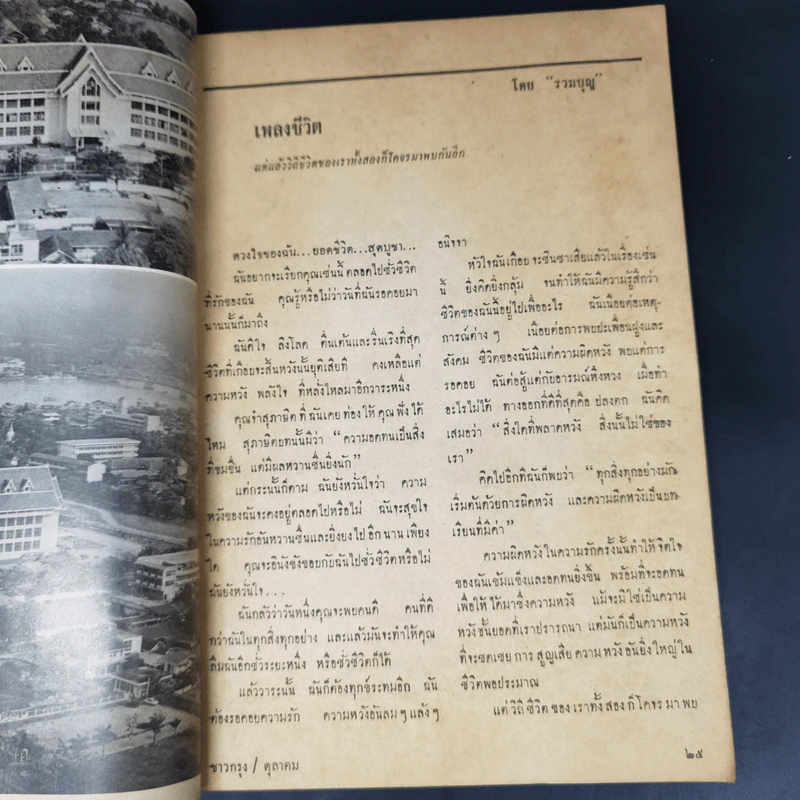 โดย “รวมบุญ”
เพลงชีวิต
แต่แล้ววิถีชีวิตของเราทั้งสองก็โคจรมาพบกันอีก
ดวงใจของฉัน...ยอดชีวิต...สุดบูชา...
ฉันอยากจะเรียกคุณเช่นนี้ ตลอดไปชั่วชีวิต
ที่รักของฉัน คุณรู้หรือไม่ว่าวันที่ฉันรอคอยมา
นานนั้นก็มาถึง
ฉันดีใจ ลิงโลด ตื่นเต้นและรื่นเริงที่สุด
ชีวิตที่เกือบจะสิ้นหวังนั้นยุติเสียที คงเหลือแต่
ความหวัง พลังใจ ที่หลั่งไหลมาอีกวาระหนึ่ง
คุณจำสุภาษิต ที่ ฉันเคย ท่อง ให้ คุณ ฟัง ได้
ไหม สุภาษิตบทนั้นมีว่า “ความอดทนเป็นสิ่ง
ที่ขมขื่น แต่มีผลหวานชื่นยิ่งนัก”
แต่กระนั้นก็ตาม ฉันยังหวั่นใจว่า ความ
หวังของฉันจะคงอยู่ตลอดไปหรือไม่ ฉันจะสุขใจ
ในความรักอันหวานชื่นและยิ่งยงไป อีก นาน เพียง
ใด คุณจะอินังขังขอบกับฉันไปชั่วชีวิตหรือไม่
ฉันยังหวั่นใจ...
ฉันกลัวว่าวันหนึ่งคุณจะพบคนดี คนที่ดี
กว่าฉันในทุกสิ่งทุกอย่าง และแล้วมันจะทำให้คุณ
ลืมฉันอีกชั่วระยะหนึ่ง หรือชั่วชีวิตก็ได้
แล้ววาระนั้น ฉันก็ต้องทุกข์ระทมอีก ฉัน
ต้องรอคอยความรัก ความหวังอันลม ๆ แล้ง ๆ
อนิจจา
หัวใจฉันเกือบ จะชินชาเสียแล้วในเรื่องเช่น
นี้ ยิ่งคิดยิ่งกลุ้ม จนทำให้ฉันมีความรู้สึกว่า
ชีวิตของฉันนี้อยู่ไปเพื่ออะไร ฉันเบื่อต่อเหตุ-
การณ์ต่าง ๆ เบื่อต่อการพบปะเพื่อนฝูงและ
สังคม ชีวิตของฉันมีแต่ความผิดหวัง พบแต่การ
รอคอย ฉันต่อสู้แต่กับอารมณ์หึงหวง เมื่อทำ
อะไรไม่ได้ ทางออกที่ดีที่สุดคือ ปลงตก ฉันคิด
เสมอว่า “สิ่งใดที่พลาดหวัง สิ่งนั้นไม่ใช่ของ
เรา”
คิดไปอีกทีฉันก็พบว่า “ทุกสิ่งทุกอย่างมัก
เริ่มต้นด้วยการผิดหวัง และความผิดหวังเป็นบท-
เรียนที่มีค่า”
ความผิดหวังในความรักครั้งนั้นทำให้ จิตใจ
ของฉันเข้มแข็งและอดทนยิ่งขึ้น พร้อมที่จะอดทน
เพื่อให้ ได้มาซึ่งความหวัง แม้จะมิใช่เป็นความ
หวังขั้นยอดที่เราปรารถนา แต่มันก็เป็นความหวัง
ที่จะชดเชย การ สูญเสีย ความ หวัง อัน ยิ่ง ใหญ่ ใน
ชีวิตพอประมาณ
แต่ วิถี ชีวิต ของ เราทั้ง สอง ก็ โคจร มา พบ
ชาวกรุง / ตุลาคม
๒๕